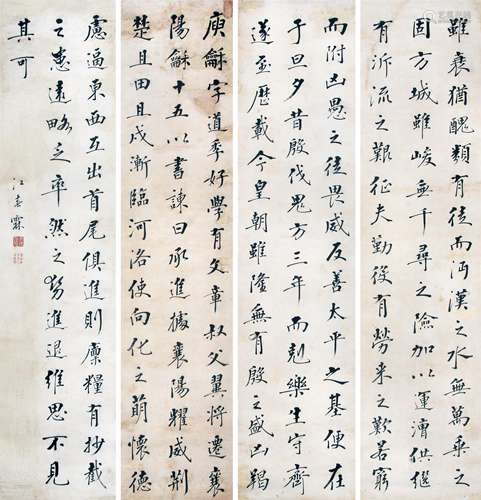 雖衰猶醜類有徒而沔漢之水無萬乘之
固方城雖峻無千尋之險加以運漕供繼
有泝流之艱征夫勤役有勞來之歎若窮
而附凶愚之徒畏威反善太平之基便在
于旦夕昔殷伐鬼方三年而剋樂生守齊
遂至歷載今皇朝雖隆無有殷之盛凶羯
庾龢字道季好學有文章叔父翼將遷襄
陽龢十五以書諫曰承進據襄陽耀威荊
楚且田且戍漸臨河洛使向化之萌懷德
慮逼東西互出首尾俱進則廩糧有抄截
之患遠略乏率然之勢進退維思不見
其可
江春霖